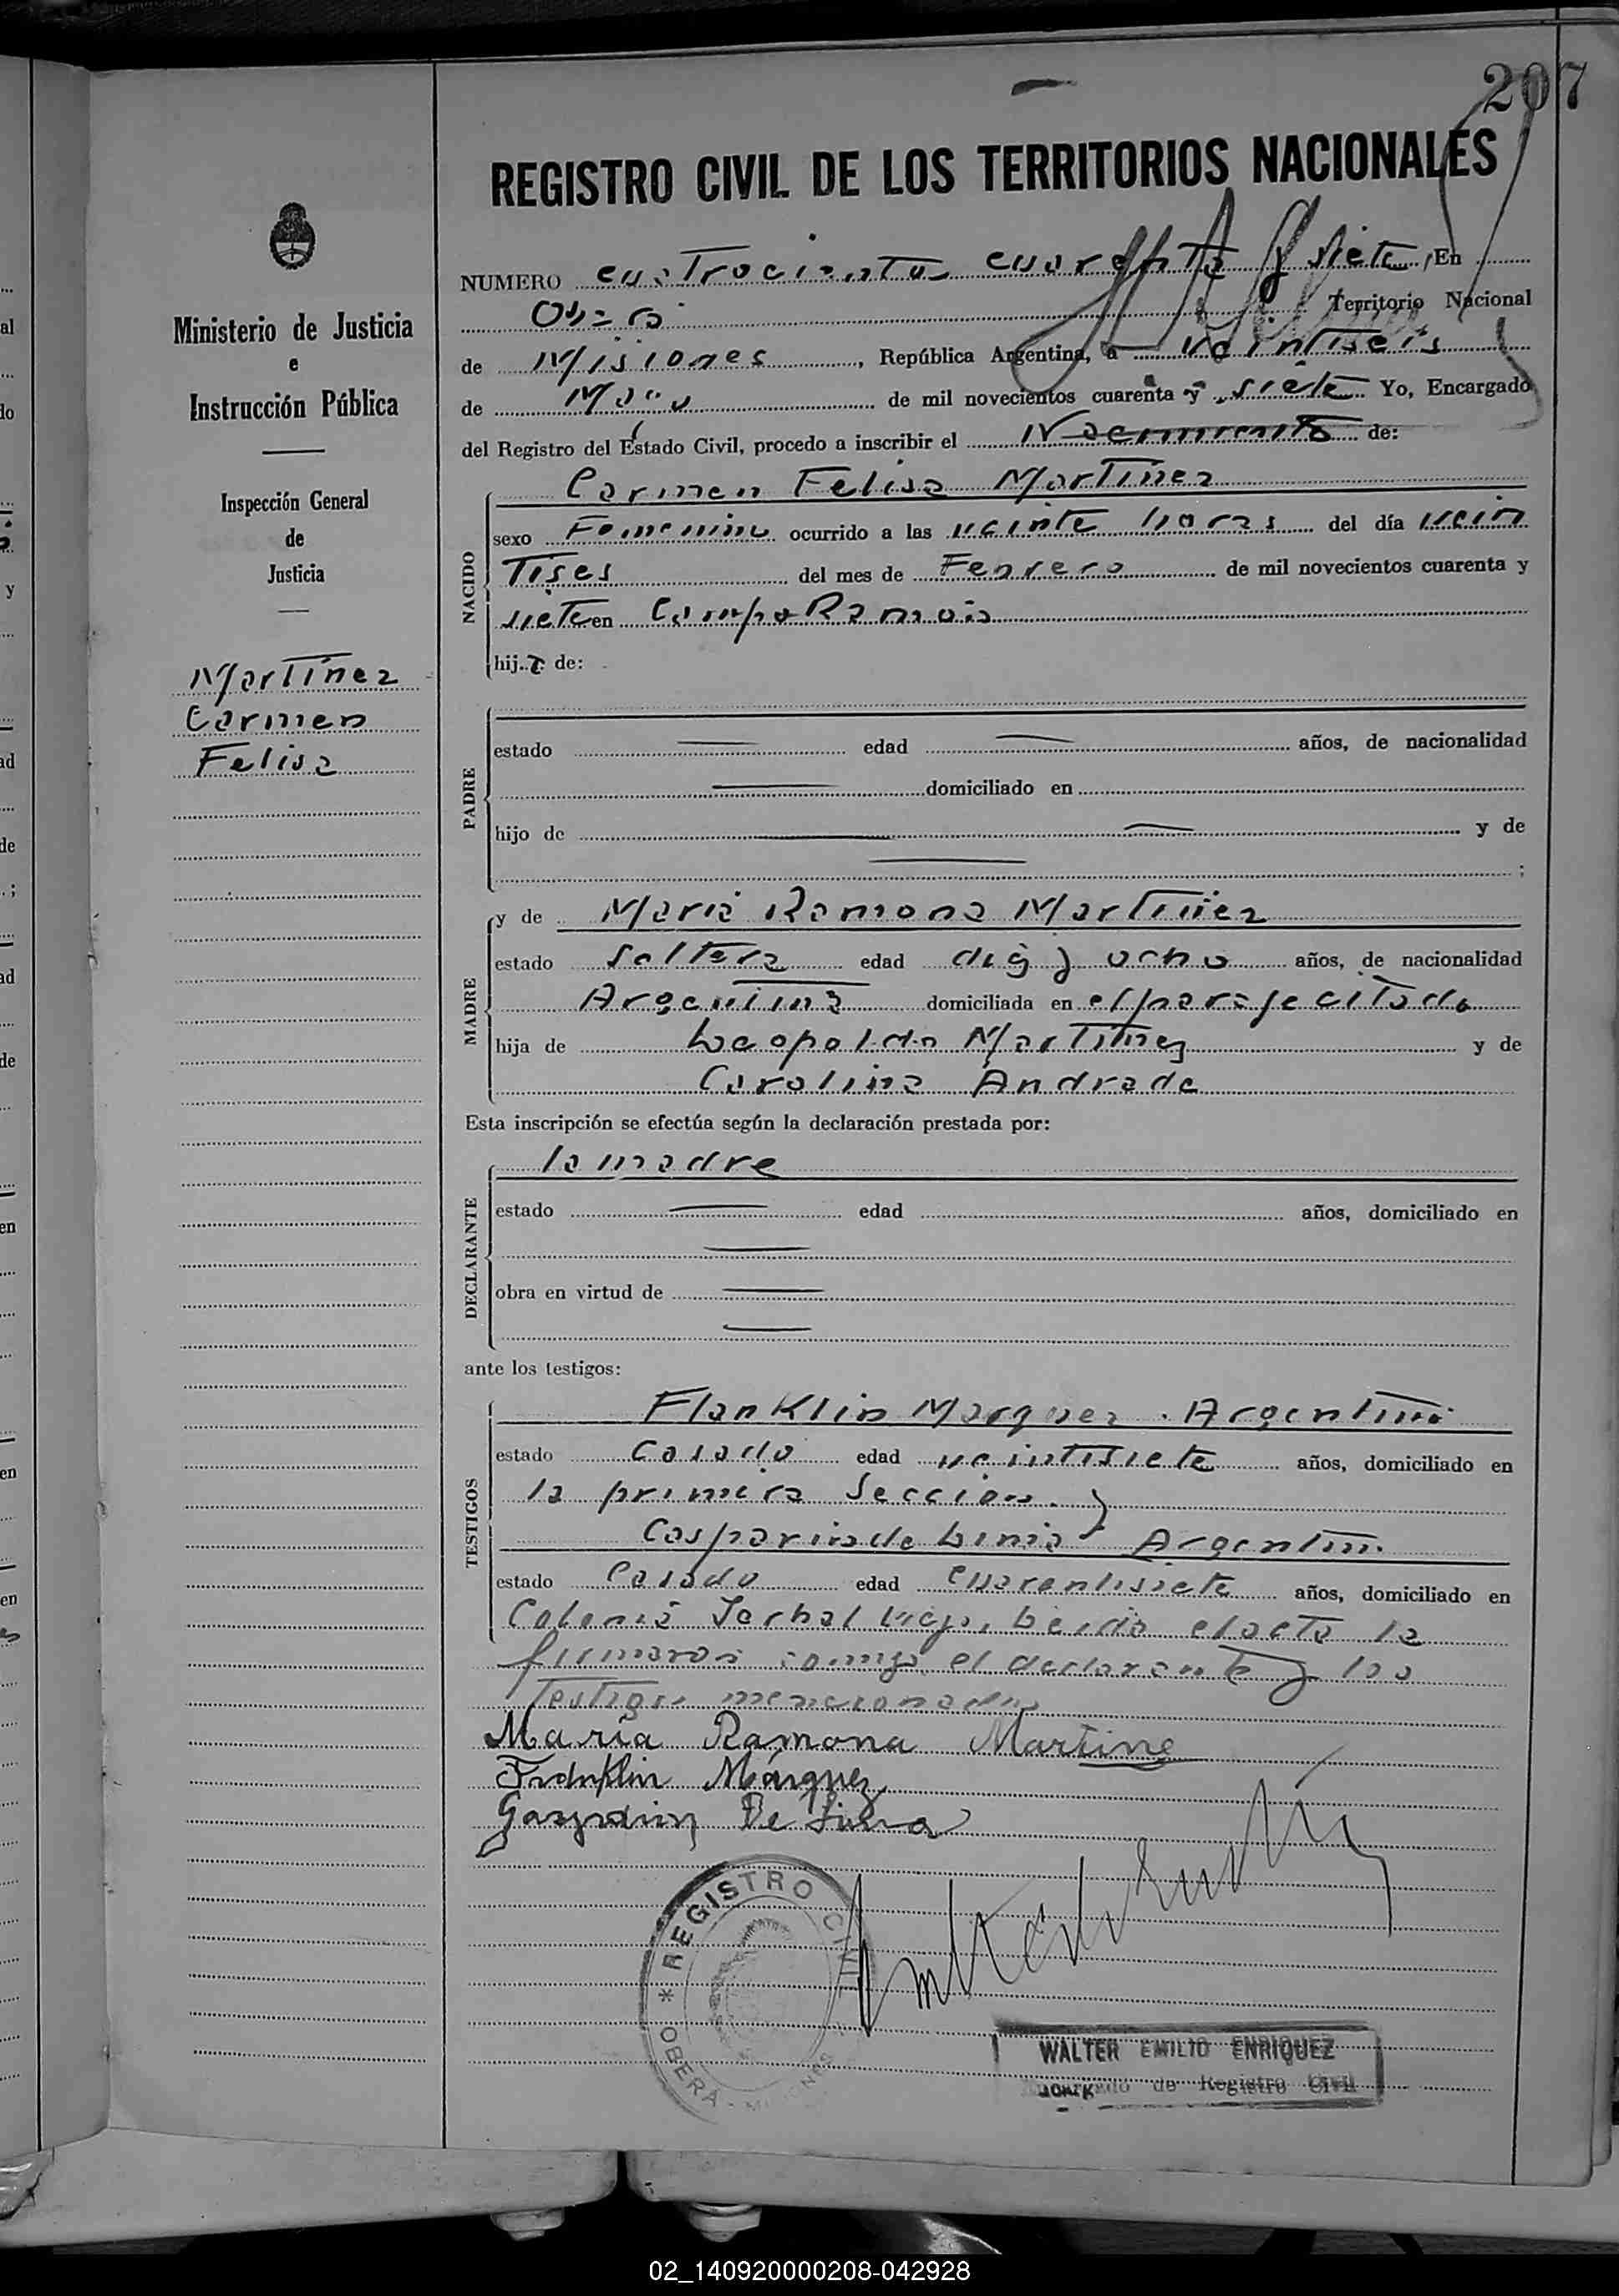 207
REGISTRO CIVIL DE LOS TERRITORIOS NACIONALES
NUMERO cuatrocientos cuarenta y siete, En
Oberá Territorio Nacional
de Misiones, República Argentina, a veintiseis
de Mayo de mil novecientos cuarenta y siete Yo, Encargado
del Registro del Estado Civil, procedo a inscribir el Nacimiento de:
Ministerio de Justicia
e
Instrucción Pública
Inspección General
de
Justicia
Martínez
Carmen
Felisa
NACIDO
Carmen Felisa Martínez
sexo Femenino ocurrido a las veinte horas del día vein
tises del mes de Febrero de mil novecientos cuarenta y
siete en Campo Ramón
hija de:
PADRE
estado edad años, de nacionalidad
domiciliado en
hijo de y de
;
MADRE
y de María Ramona Martínez
estado Soltera edad diez y ocho años, de nacionalidad
Argentina domiciliada en el paraje citado
hija de Leopoldo Martínez y de
Carolina Andrade
Esta inscripción se efectúa según la declaración prestada por:
DECLARANTE
la madre
estado edad años, domiciliado en
obra en virtud de
ante los testigos:
TESTIGOS
Flanklin Marquez. Argentino
estado Casado edad veintisiete años, domiciliado en
la primera Sección. y
Casparin de Lima Argentino
estado Casado edad cuarentisiete años, domiciliado en
Colonia Yerbal Viejo, Leida el acta la
firmaron conmigo el declarante y los
testigos mencionados
María Ramona Martine
Franklin Márquez
Gasparin De Lima
* REGISTRO CIVIL
OBERA - MISIONES
WALTER EMILIO ENRIQUEZ
Encargado de Registro Civil
02_140920000208-042928